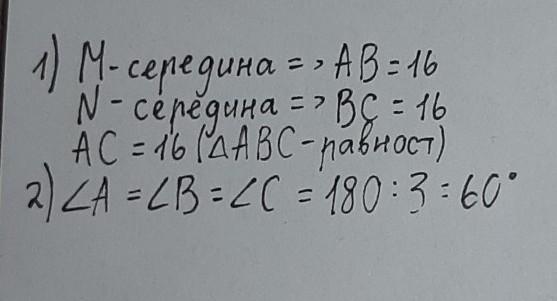 1) M-середина => AB = 16
N-середина => BC = 16
AC = 16 (△ABC-равност)
2) ∠A = ∠B = ∠C = 180 : 3 = 60°